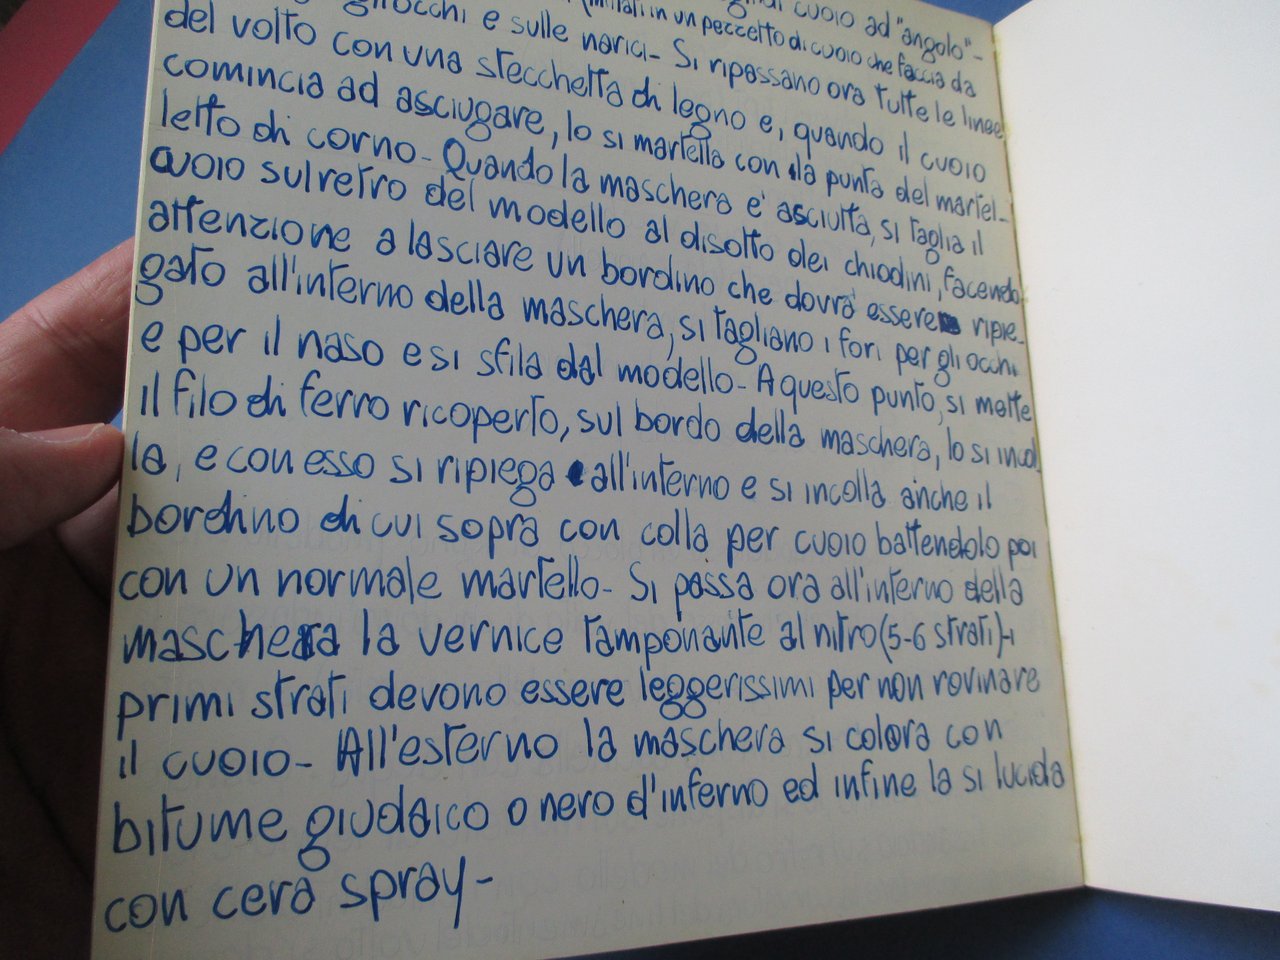 di cuoio ad "angolo"-
gli occhi e sulle narici- Si ripassano ora tutte le linee
in un peccetto di cuoio che faccia da
del volto con una stecchetta di legno e, quando il cuoio
comincia ad asciugare, lo si martella con la punta del martel-
letto di corno- Quando la maschera e' asciutta, si taglia il
cuoio sul retro del modello al disotto dei chiodini, facendo
attenzione a lasciare un bordino che dovra' essere ripie-
gato all'interno della maschera, si tagliano i fori per gli occhi
e per il naso e si sfila dal modello- A questo punto, si mette
il filo di ferro ricoperto, sul bordo della maschera, lo si incol
la, e con esso si ripiega all'interno e si incolla anche il
bordino di cui sopra con colla per cuoio battendolo poi
con un normale martello- Si passa ora all'interno della
maschera la vernice tamponante al nitro (5-6 strati)-i
primi strati devono essere leggerissimi per non rovinare
il cuoio- All'esterno la maschera si colora con
bitume giudaico o nero d'inferno ed infine la si lucida
con cera spray-